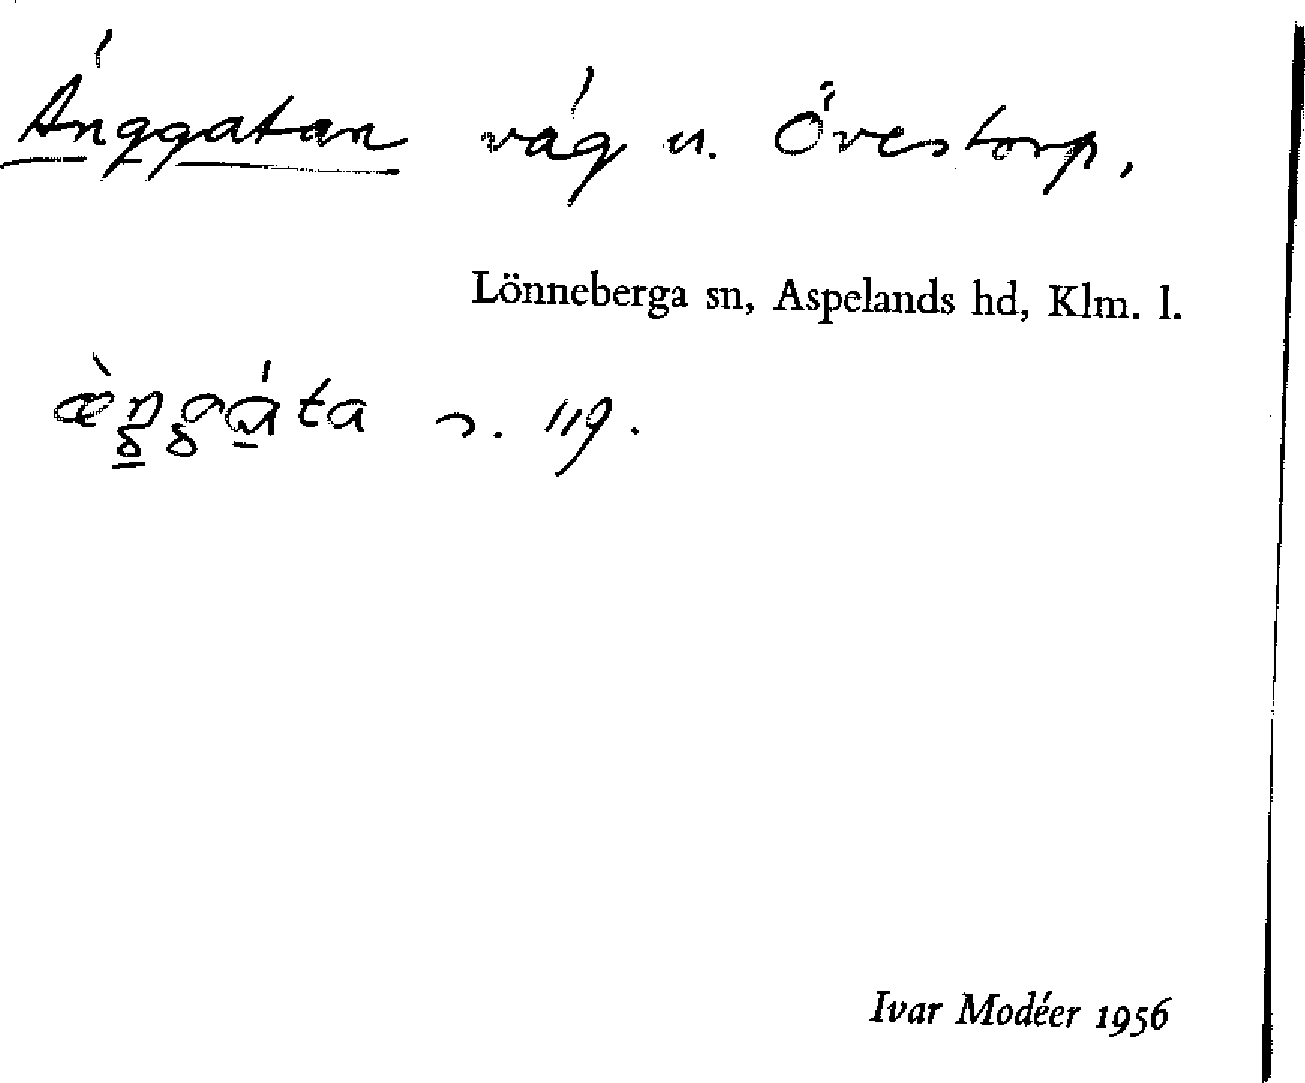 Änggatan väg u. Övestorp,
Lönneberga sn, Aspelands hd, Klm. l.
s. 119.
Ivar Modéer 1956